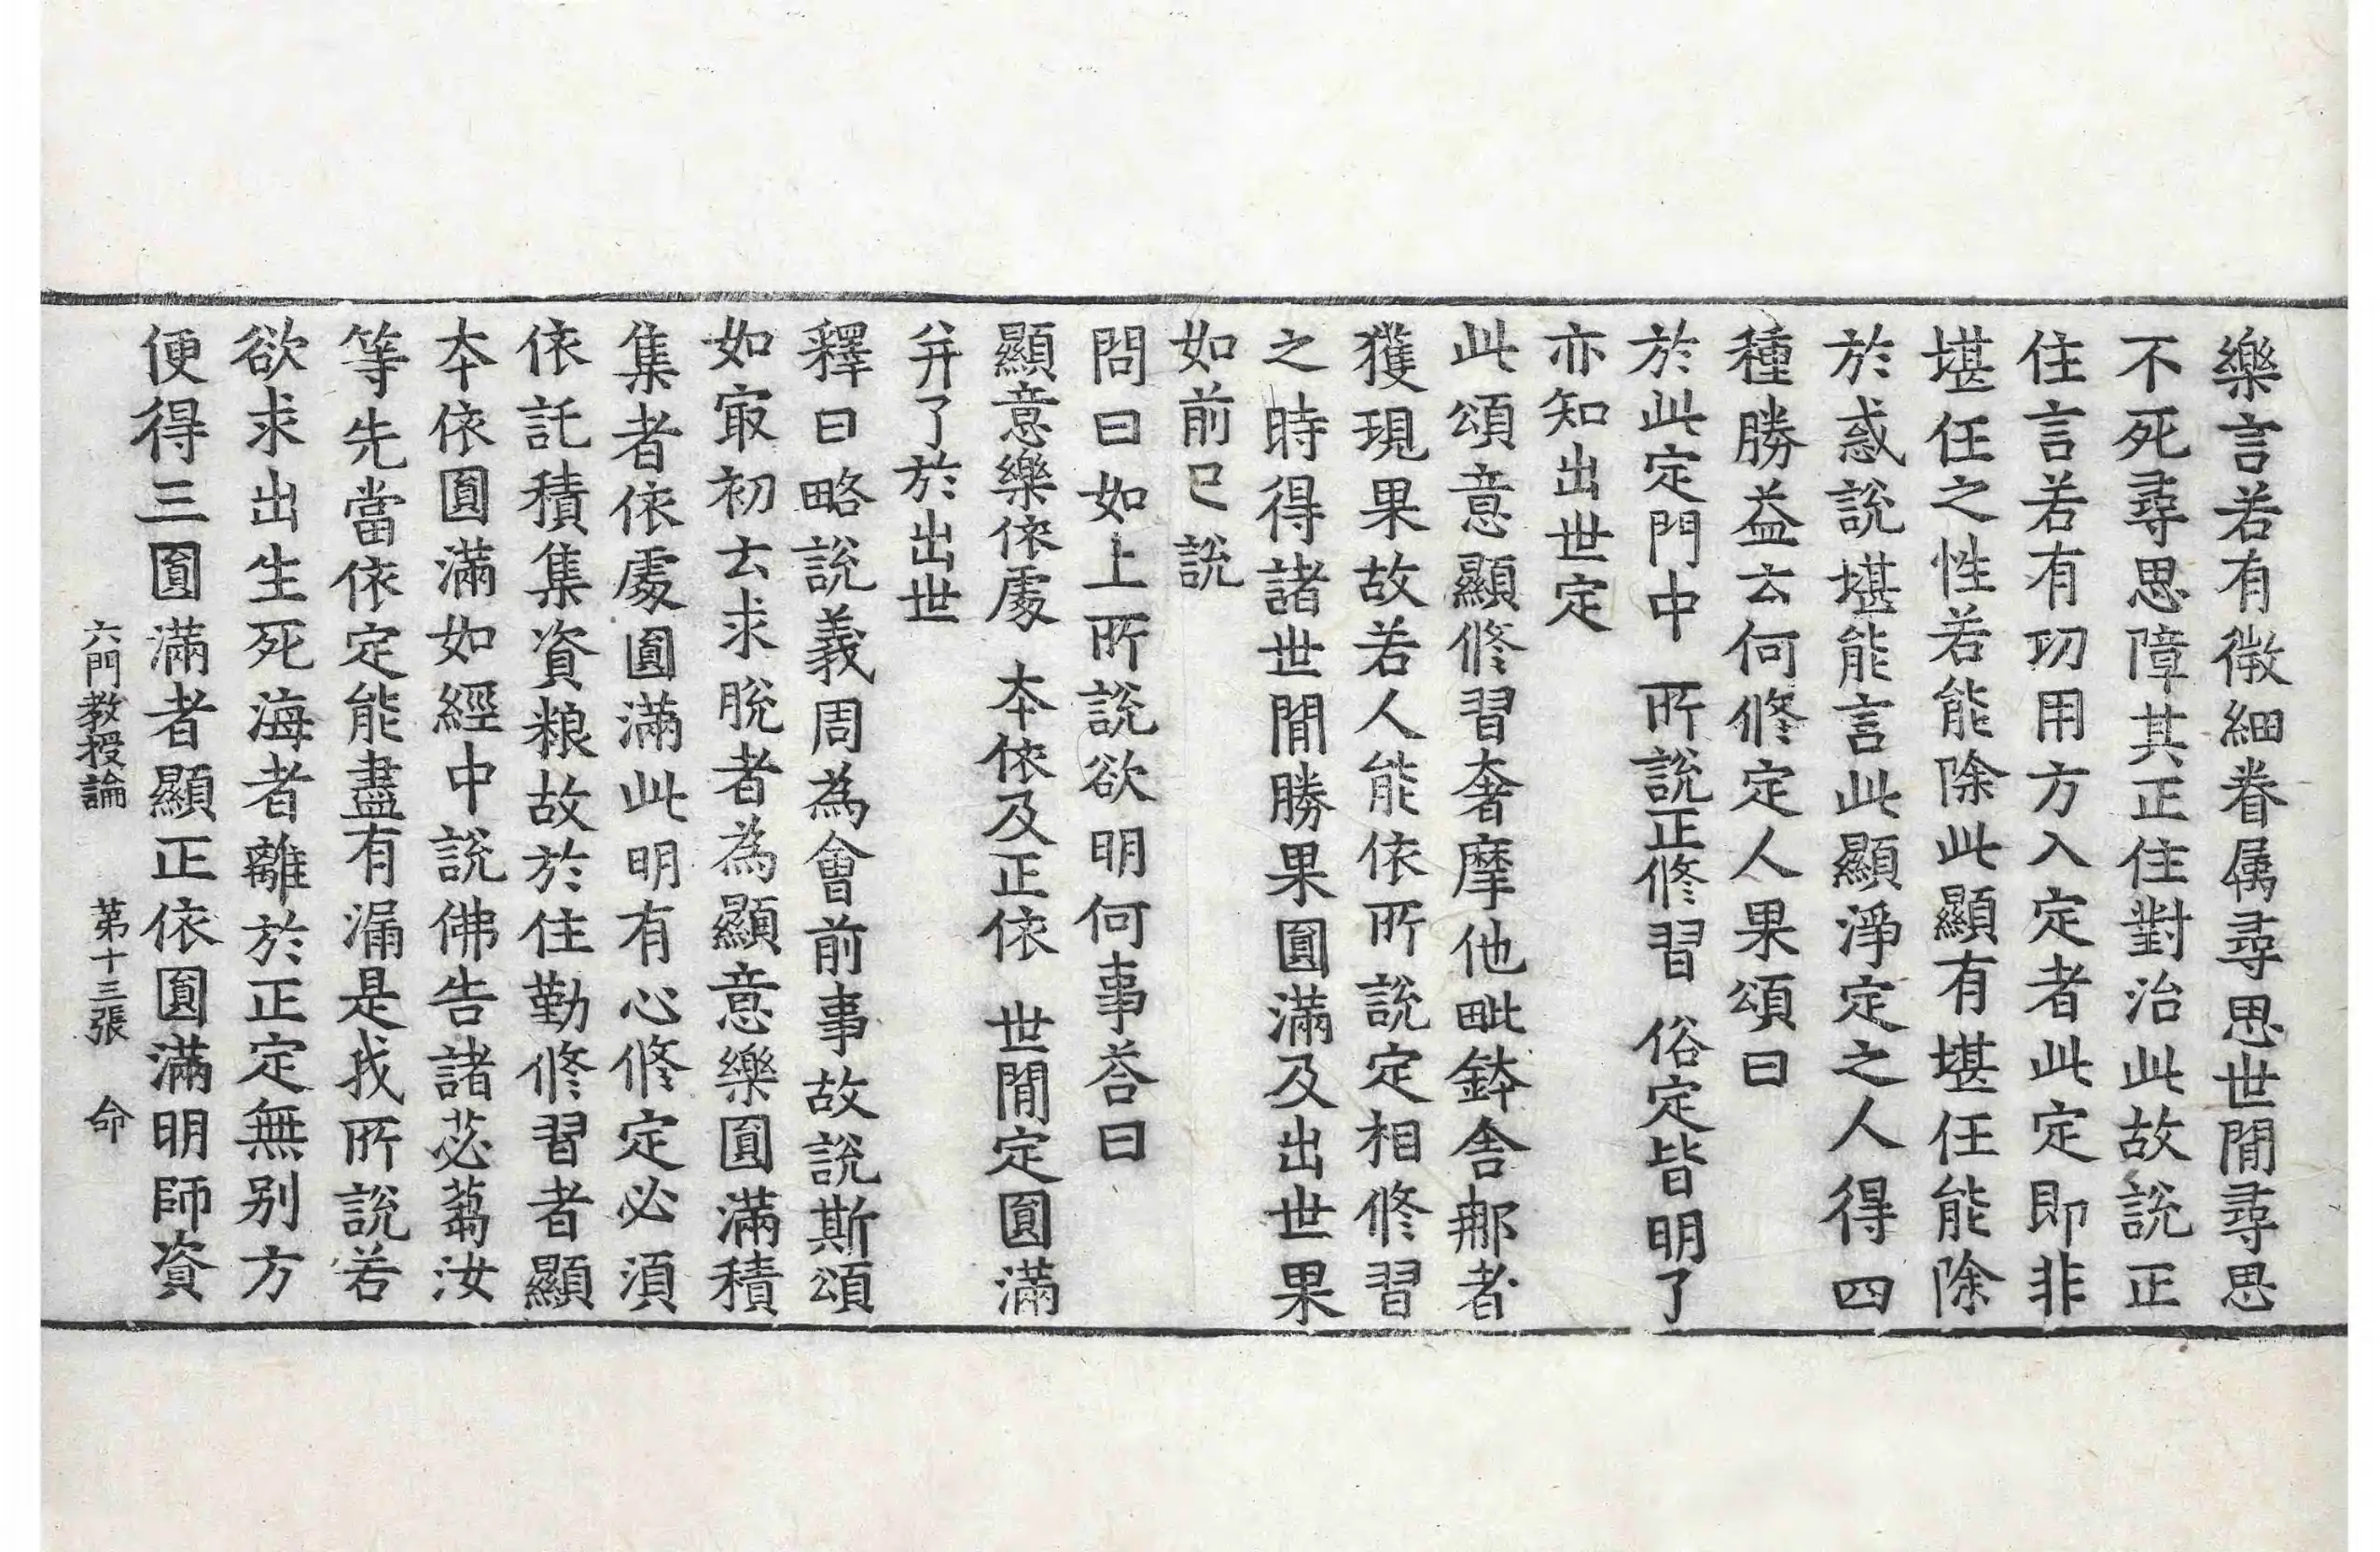 樂言若有微細眷属尋思世閒尋思
不死尋思障其正住對治此故說正
住言若有功用方入定者此定即非
堪任之性若能除此顯有堪任能除
於惑說堪能言此顯淨定之人得四
種勝益云何修定人果頌曰
於此定門中 所說正修習 俗定皆明了
亦知出世定
此頌意顯修習奢摩他毗鉢舍那者
獲現果故若人能依所說定相修習
之時得諸世閒勝果圓滿及出世果
如前已說
問曰如上所說欲明何事荅曰
顯意樂依處 本依及正依 世閒定圓滿
并了於出世
釋曰略說義周為會前事故說斯頌
如冣初去求脫者為顯意樂圓滿積
集者依處圓滿此明有心修定必須
依託積集資粮故於住勤修習者顯
本依圓滿如經中說佛告諸苾蒭汝
等先當依定能盡有漏是我所說若
欲求出生死海者離於正定無别方
便得三圓滿者顯正依圓滿明師資
六門教授論 第十三張 命